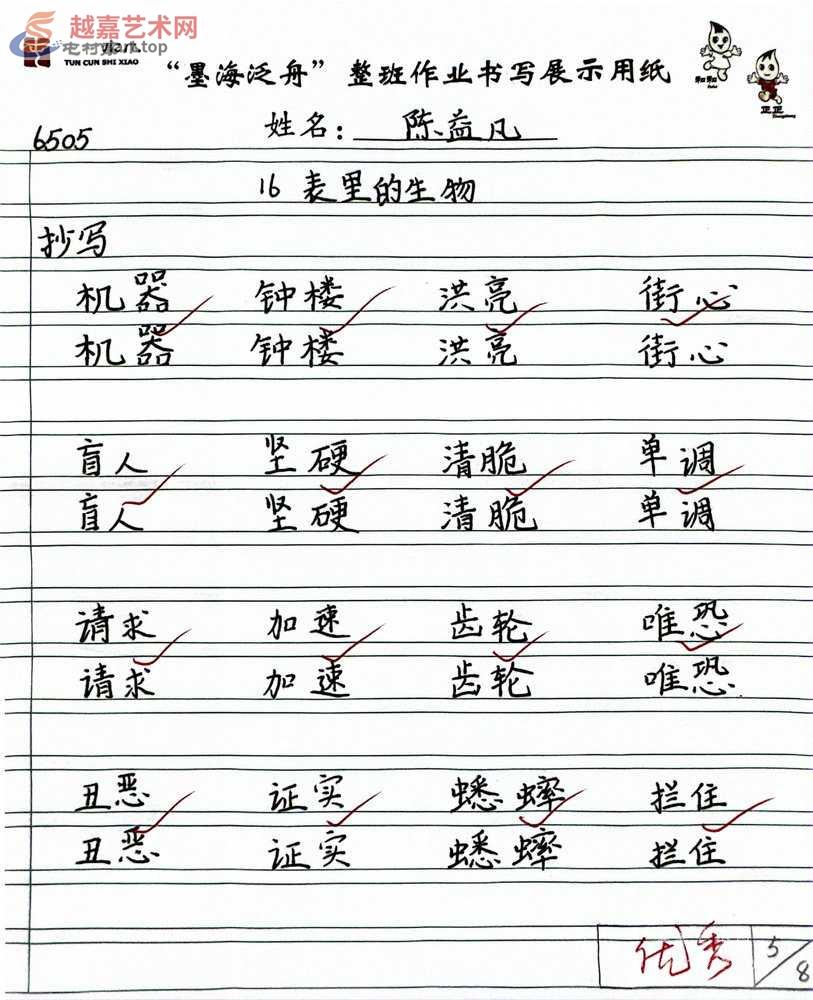 越嘉艺术网
TUN CUN SHI XIAO
“墨海泛舟”整班作业书写展示用纸
和和
正正
6505
姓名：陈益凡
16 表里的生物
抄写
机器 钟楼 洪亮 街心
机器 钟楼 洪亮 街心
盲人 坚硬 清脆 单调
盲人 坚硬 清脆 单调
请求 加速 齿轮 唯恐
请求 加速 齿轮 唯恐
丑恶 证实 蟋蟀 拦住
丑恶 证实 蟋蟀 拦住
优秀 5/8